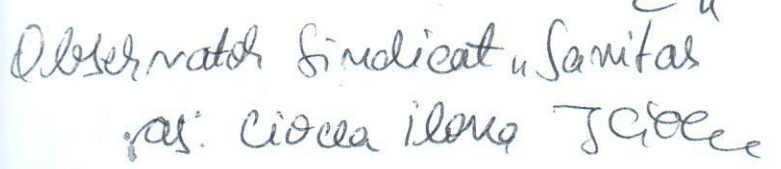 Observator Sindicat „Sanitas"
as. Ciocea Ilona